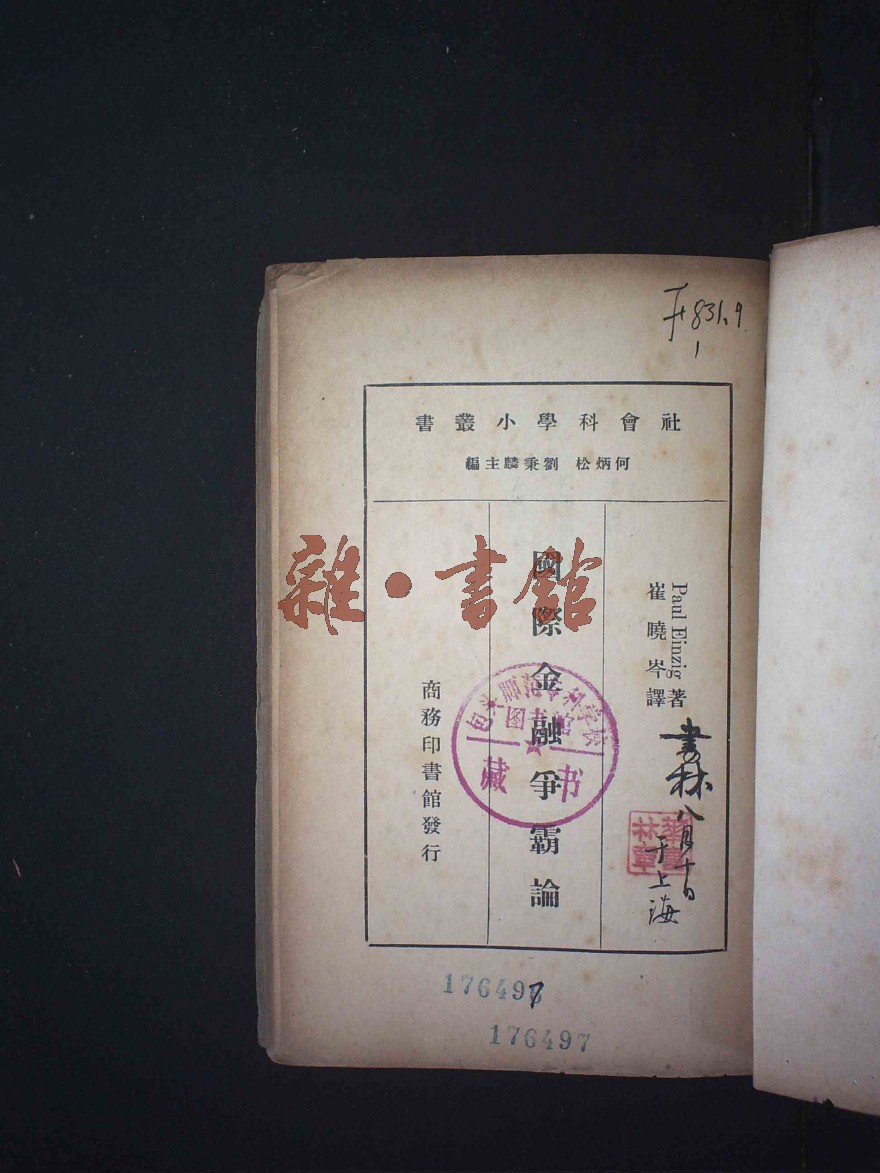 F831.9
1
社會科學小叢書
何炳松 劉秉麟主編
Paul Einzig 著
崔曉岑譯
國際金融爭霸論
商務印書館發行
雜·書館
包头师范专科学校
图书馆
藏书
書林
八月十日
于上海
176497
176497